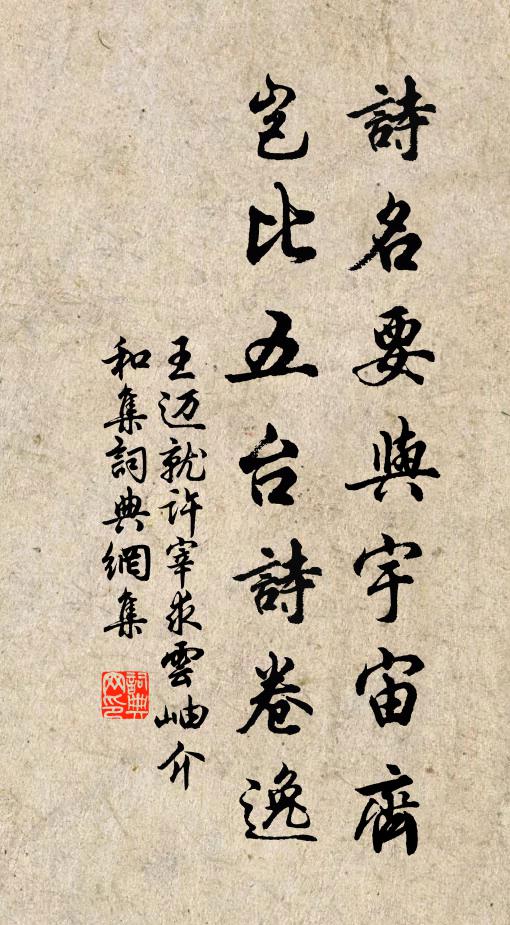 詩名要與宇宙齊
豈比五台詩卷逸
王迈就许宰求雲岫介
和集詞典網集
詞典網印